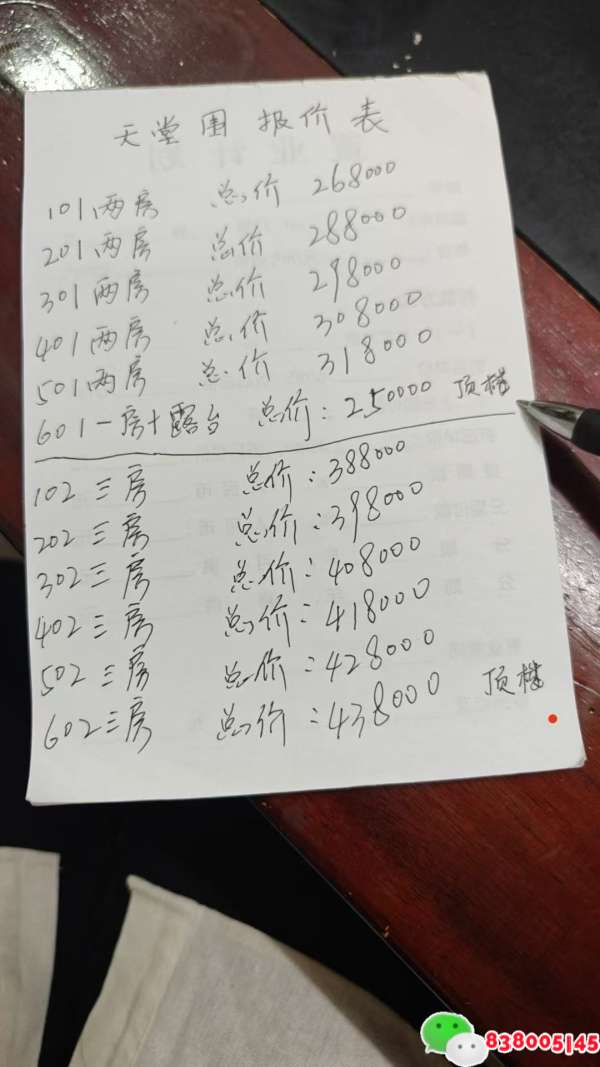 天堂围报价表
101两房 总价 268000
201两房 总价 288000
301两房 总价 298000
401两房 总价 308000
501两房 总价 318000
601一房+露台 总价:250000 顶楼
102三房 总价:388000
202三房 总价:398000
302三房 总价:408000
402三房 总价:418000
502三房 总价:428000
602三房 总价:438000 顶楼
838005145